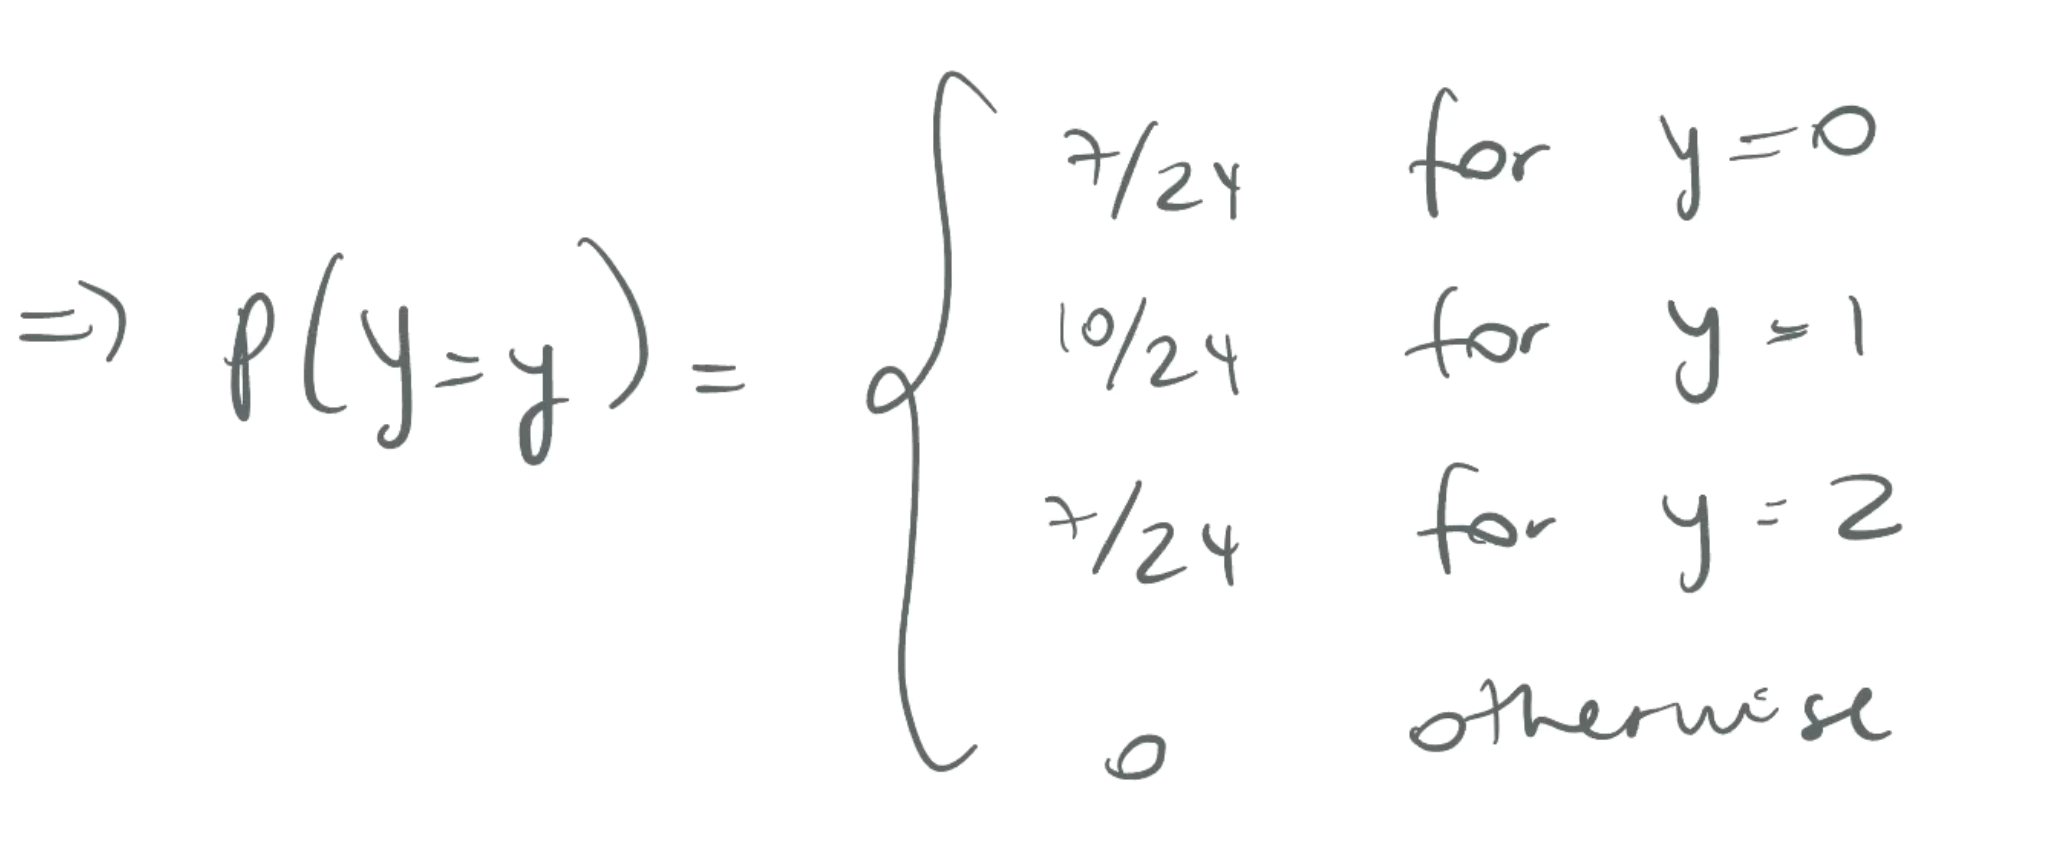 7/24 for y=0
10/24 for y=1
=> P(y=y) =
7/24 for y=2
0 otherwise